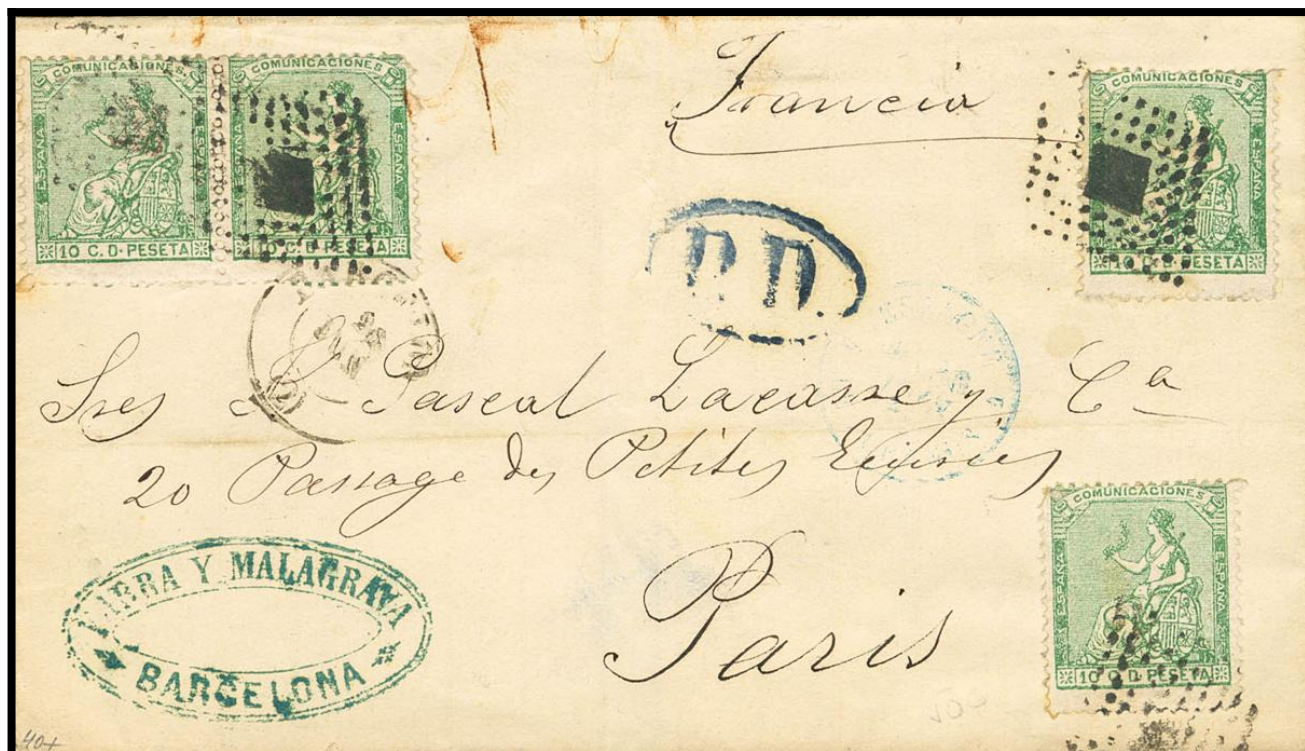 COMUNICACIONES
ESPAÑA
ESPAÑA
10 C. D. PESETA
COMUNICACIONES
ESPAÑA
10 C. D. PESETA
Francia
COMUNICACIONES
ESPAÑA
10 C. D. PESETA
P.D.
Sres Pascal Lacasse y Cª
20 Passage des Petites Ecuries
Paris
Y MALAGRAVA
BARCELONA
COMUNICACIONES
ESPAÑA
ESPAÑA
10 C. D. PESETA
40+